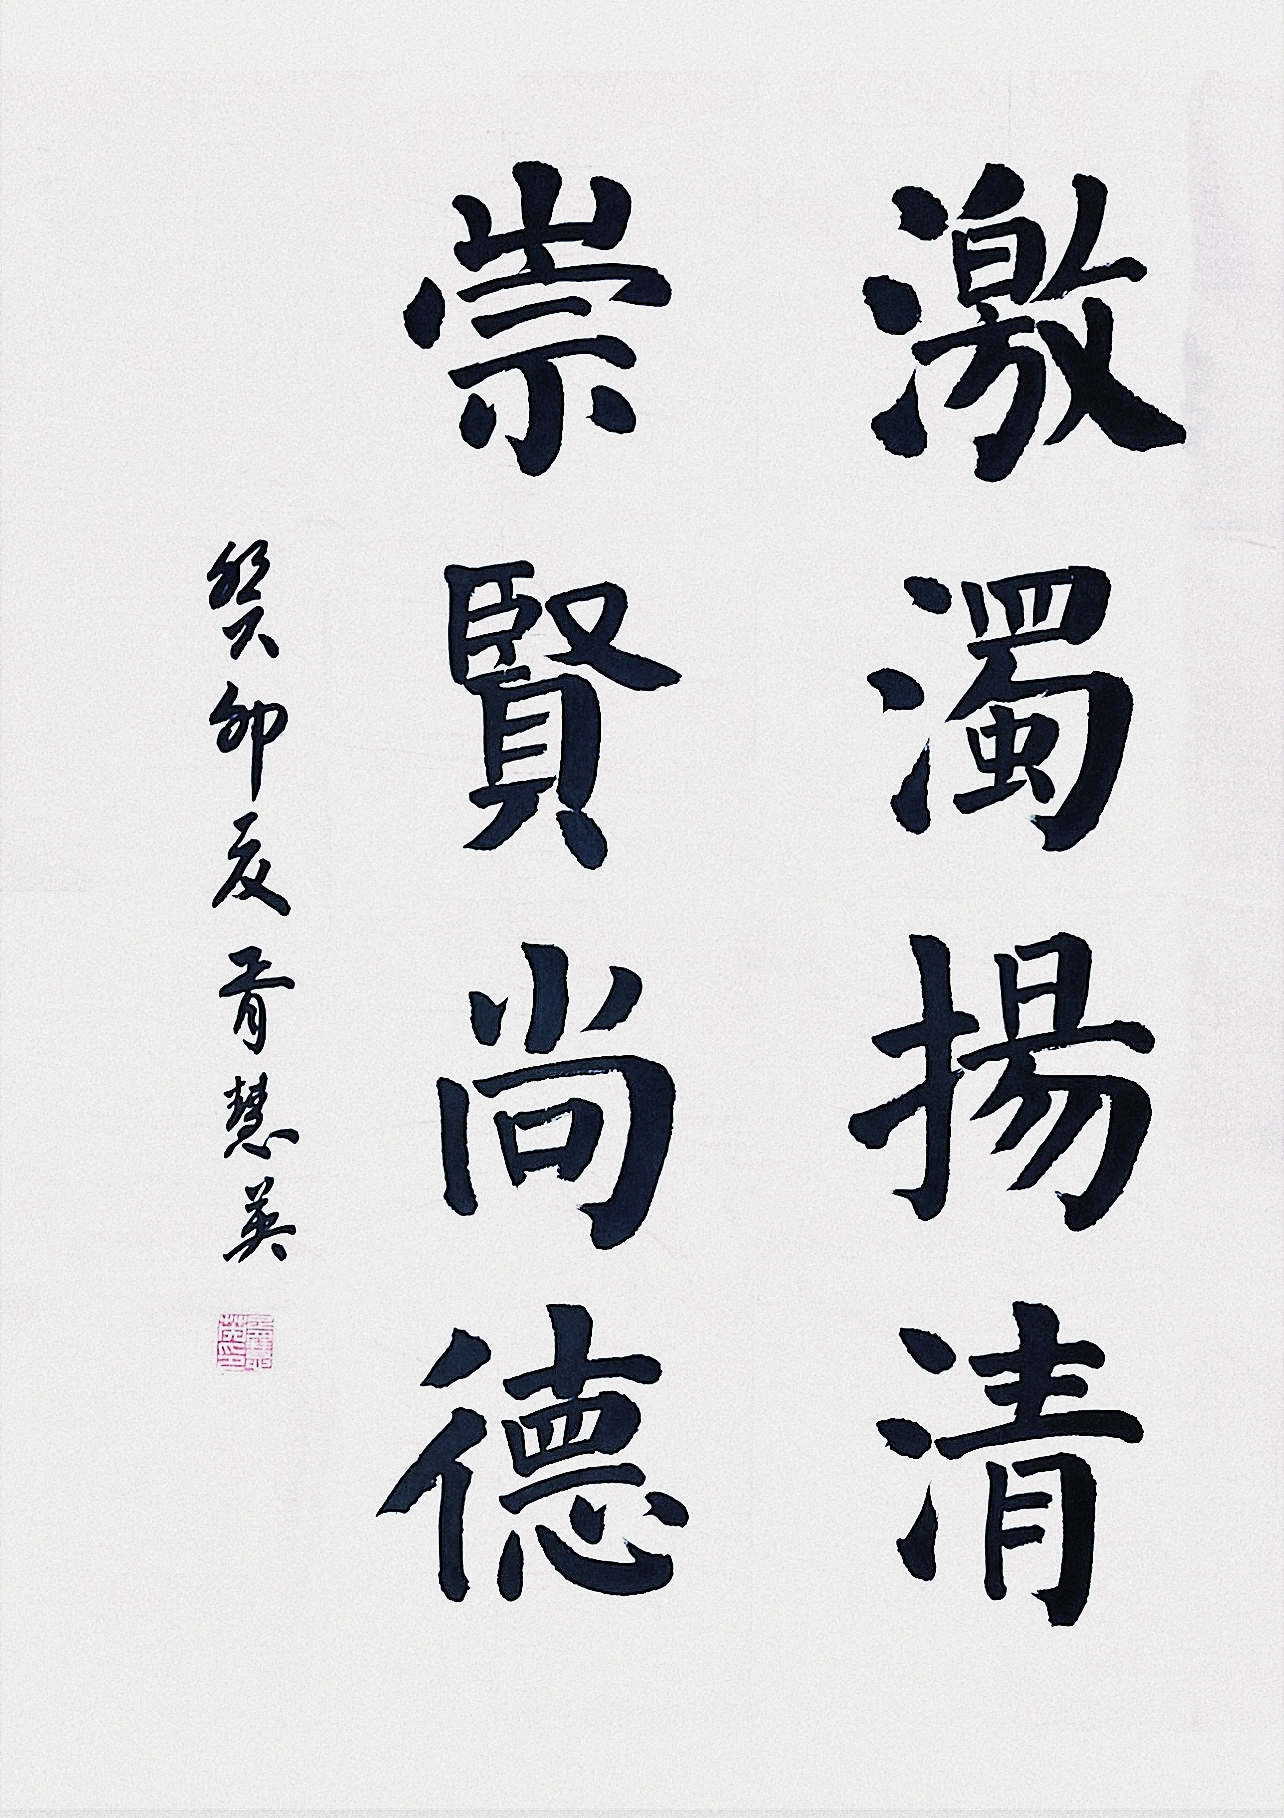 激濁揚清
崇賢尚德
癸卯夏胥慧英